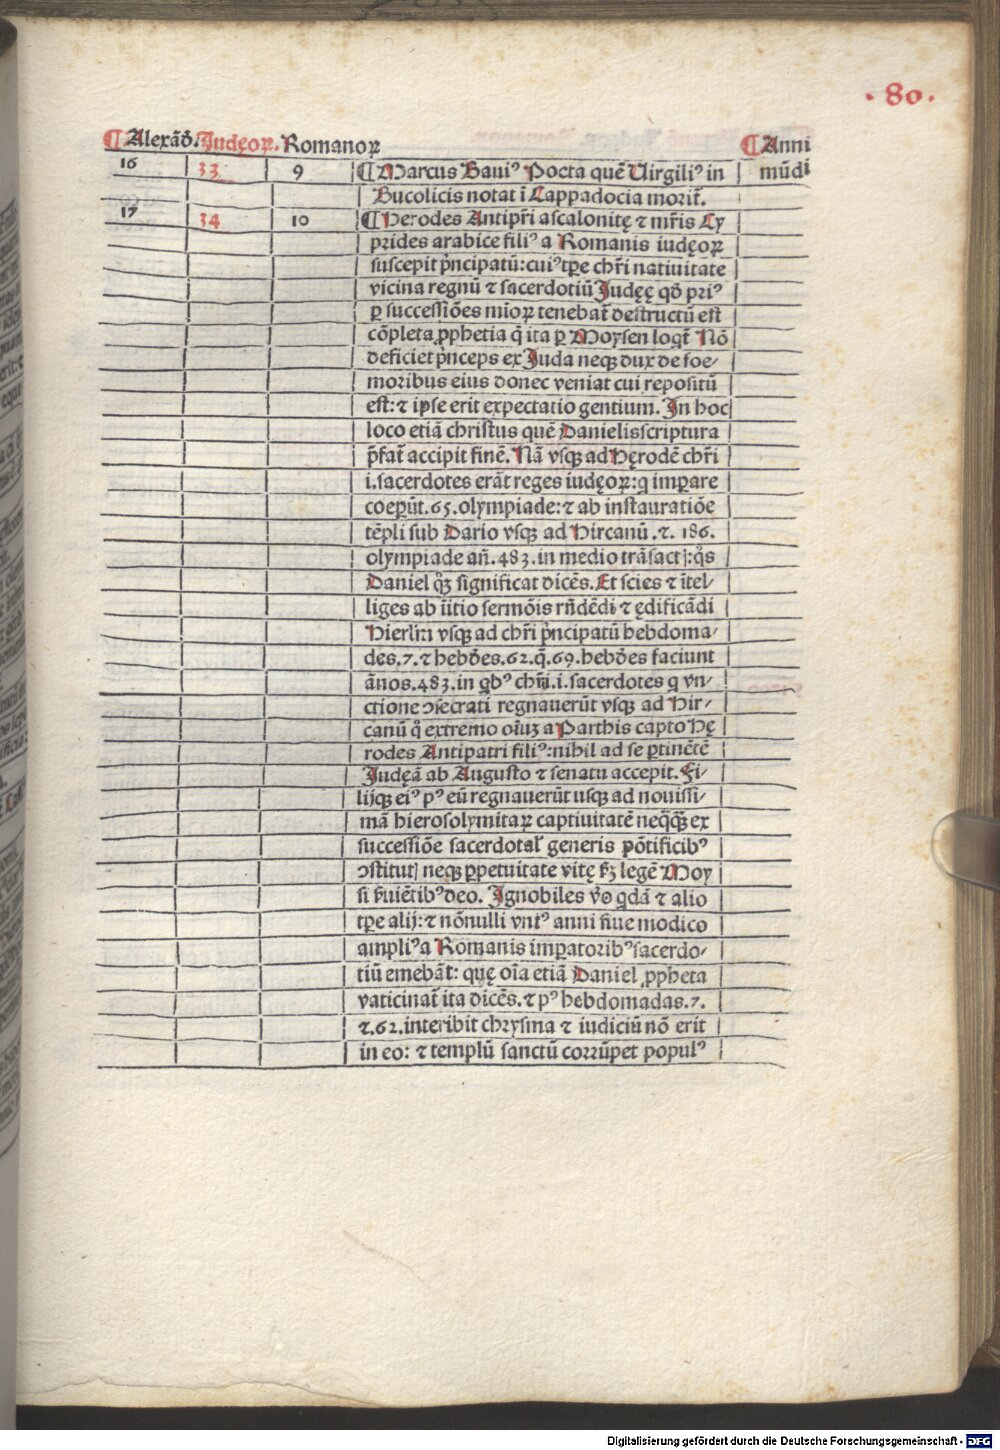 · 80 ·
¶Alexãd. Judęoꝝ. Romanoꝝ ¶Anni
16 33 9 ¶Marcus Baui⁹ Poeta quē Virgili⁹ in mūdi
Bucolicis notat ī Cappadocia morit̄.
17 34 10 ¶Herodes Antipr̄i ascalonitę ⁊ mr̄is Cy
prides arabice fili⁹ a Romanis iudęoꝝ
suscepit pͥncipatū: cui⁹ tꝑe chr̄i natiuitate
vicina regnū ⁊ sacerdotiū Judęę qd̄ pri⁹
ꝑ successiōes mīoꝝ tenebat̄ destructū est
cōpleta ꝓphetia q̄ ita ꝑ Moysen loqt̄ Nō
deficiet pͥnceps ex Juda neqꝫ dux de foe-
moribus eius donec veniat cui repositū
est: ⁊ ipse erit expectatio gentium. In hoc
loco etiā christus quē Danielis scriptura
p̄fat̄ accipit finē. Nā vsqꝫ ad Hęrodē chr̄i
i. sacerdotes erāt reges iudęoꝝ: q imꝑare
coeperūt. 65. olympiade: ⁊ ab instauratiōe
tēpli sub Dario vsqꝫ ad Hircanū. ⁊. 186.
olympiade añ. 483. in medio trāsactꝭ: qͦs
Daniel qͦꝫ significat dicēs. Et scies ⁊ ītel-
liges ab īitio sermōis rn̄dēdi ⁊ ędificādi
Hierlm̄ vsqꝫ ad chr̄i pͥncipatū hebdoma-
des. 7. ⁊ hebd̄es. 62. q̄. 69. hebd̄es faciunt
ãnos. 483. in qb⁹ chr̄i. i. sacerdotes q vn-
ctione ↄsecrati regnauerūt vsqꝫ ad Hir-
canū qͦ extremo oīuꝫ a Parthis capto Hę
rodes Antipatri fili⁹: nihil ad se ꝑtinētē
Judęā ab Augusto ⁊ senatu accepit. Fi-
lijqꝫ ei⁹ p⁹ eū regnauerūt usqꝫ ad nouissi-
mā hierosolymitaꝝ captiuitatē neq̄q̄ꝫ ex
successiōe sacerdotal' generis pōtificib⁹
ↄstitutꝭ neqꝫ ꝑpetuitate vitę ẜꝫ legē Moy
si ẜuiētib⁹ deo. Ignobiles v̄o qdā ⁊ alio
tꝑe alij: ⁊ nōnulli vni⁹ anni siue modico
ampli⁹ a Romanis imꝑatorib⁹ sacerdo-
tiū emebāt: quę oīa etiā Daniel ꝓpheta
vaticinat̄ ita dicēs. ⁊ p⁹ hebdomadas. 7.
⁊. 62. interibit chrysma ⁊ iudiciū nō erit
in eo: ⁊ templū sanctū corrūpet popul⁹
Digitalisierung gefördert durch die Deutsche Forschungsgemeinschaft - DFG